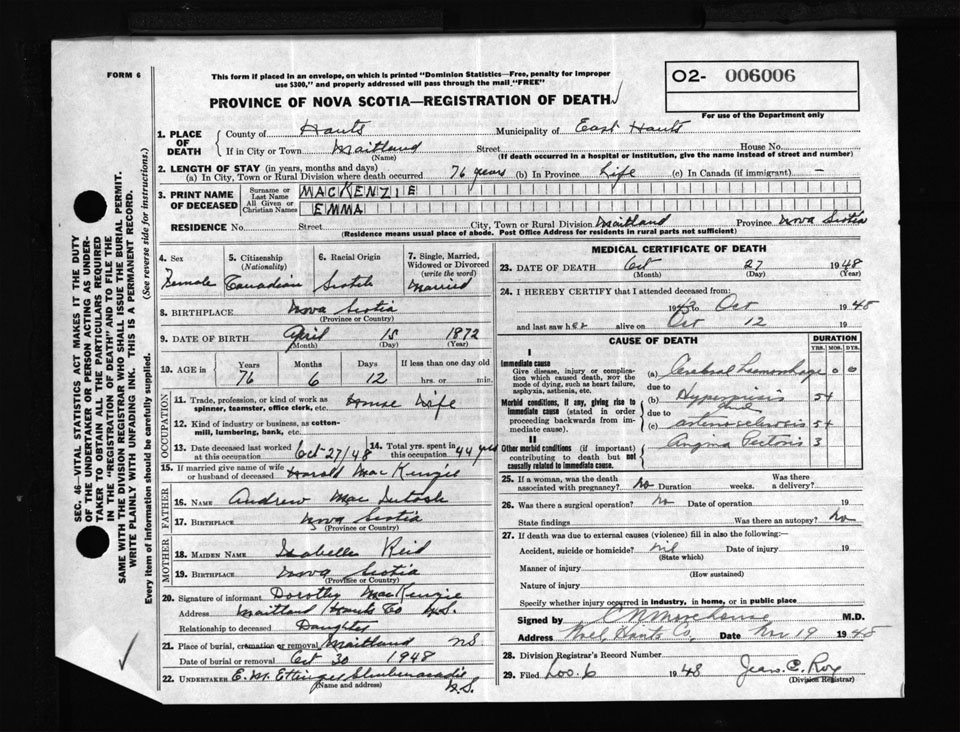 FORM 6
This form if placed in an envelope, on which is printed "Dominion Statistics—Free, penalty for improper
use $300," and properly addressed will pass through the mail "FREE"
02- 006006
For use of the Department only
PROVINCE OF NOVA SCOTIA—REGISTRATION OF DEATH
1. PLACE OF DEATH County of Hants Municipality of East Hants
If in City or Town Maitland Street House No.
(Name) (If death occurred in a hospital or institution, give the name instead of street and number)
2. LENGTH OF STAY (in years, months and days)
(a) In City, Town or Rural Division where death occurred 76 years (b) In Province Life (c) In Canada (if immigrant) —
3. PRINT NAME OF DECEASED Surname or Last Name MACKENZIE
All Given or Christian Names EMMA
RESIDENCE No. Street City, Town or Rural Division Maitland Province Nova Scotia
(Residence means usual place of abode. Post Office Address for residents in rural parts not sufficient)
4. Sex 5. Citizenship (Nationality) 6. Racial Origin 7. Single, Married, Widowed or Divorced (write the word)
Female Canadian Scotch Married
8. BIRTHPLACE Nova Scotia
(Province or Country)
9. DATE OF BIRTH April 15 1872
(Month) (Day) (Year)
10. AGE Years Months Days If less than one day old
76 6 12 hrs. or min.
OCCUPATION
11. Trade, profession, or kind of work as House Wife
spinner, teamster, office clerk, etc.
12. Kind of industry or business, as cotton-
mill, lumbering, bank, etc.
13. Date deceased last worked at this occupation Oct 27/48 14. Total yrs. spent in this occupation 44 yrs
15. If married give name of wife or husband of deceased Harold MacKenzie
FATHER
16. NAME Andrew MacIntosh
17. BIRTHPLACE Nova Scotia
(Province or Country)
MOTHER
18. MAIDEN NAME Isabelle Reid
19. BIRTHPLACE Nova Scotia
(Province or Country)
20. Signature of informant Dorothy MacKenzie
Address Maitland Hants Co N.S.
Relationship to deceased Daughter
21. Place of burial, cremation or removal Maitland NS
Date of burial or removal Oct 30 1948
22. UNDERTAKER E. M. Ettinger Shubenacadie
(Name and address) N.S.
MEDICAL CERTIFICATE OF DEATH
23. DATE OF DEATH Oct 27 1948
(Month) (Day) (Year)
24. I HEREBY CERTIFY that I attended deceased from:
1943 to Oct 1948
and last saw her alive on Oct 12 19
CAUSE OF DEATH DURATION
YRS. MOS. DYS.
I
Immediate cause
Give disease, injury or complica-
tion which caused death, NOT the
mode of dying, such as heart failure,
asphyxia, asthenia, etc.
(a) Cerebral haemorrhage 0 0
due to
Morbid conditions, if any, giving rise to
immediate cause (stated in order
proceeding backwards from im-
mediate cause).
(b) Hyperpiesis 5+
due to and
(c) arteriosclerosis 5+
II
Other morbid conditions (if important)
contributing to death but not
causally related to immediate cause.
Angina Pectoris 3
25. If a woman, was the death associated with pregnancy? No Duration weeks. Was there a delivery?
26. Was there a surgical operation? No Date of operation 19
State findings Was there an autopsy? No
27. If death was due to external causes (violence) fill in also the following:—
Accident, suicide or homicide? nil Date of injury 19
(State which)
Manner of injury
(How sustained)
Nature of injury
Specify whether injury occurred in industry, in home, or in public place
Signed by M.D.
Address Noel Hants Co, Date Nov 19 1948
28. Division Registrar's Record Number
29. Filed 6 1948 Jean C. Roy
(Division Registrar)
SEC. 46—VITAL STATISTICS ACT MAKES IT THE DUTY
OF THE UNDERTAKER OR PERSON ACTING AS UNDER-
TAKER TO OBTAIN ALL THE PARTICULARS REQUIRED
IN THE "REGISTRATION OF DEATH" AND TO FILE THE
SAME WITH THE DIVISION REGISTRAR WHO SHALL ISSUE THE BURIAL PERMIT.
WRITE PLAINLY WITH UNFADING INK. THIS IS A PERMANENT RECORD.
Every item of information should be carefully supplied. (See reverse side for instructions.)